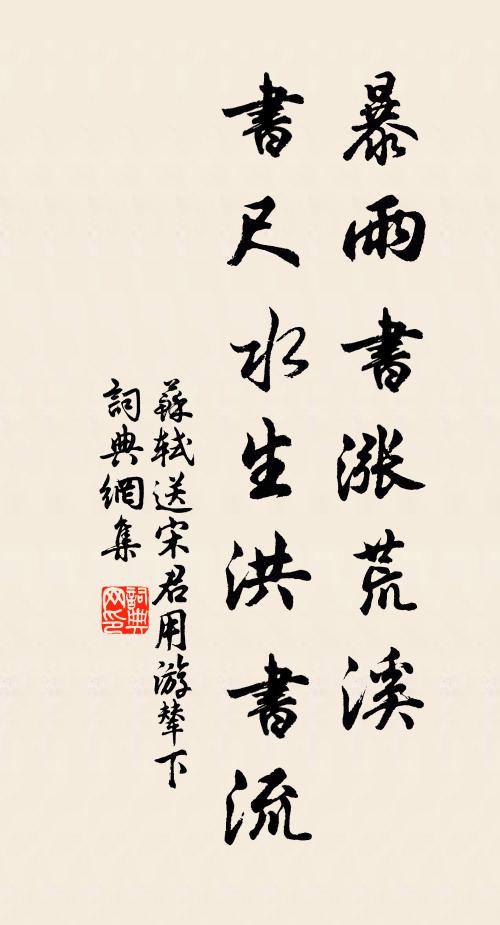 暴雨書漲荒溪
書尺水生洪書流
蘇軾送宋君用游輦下
詞典網集
詞典网印